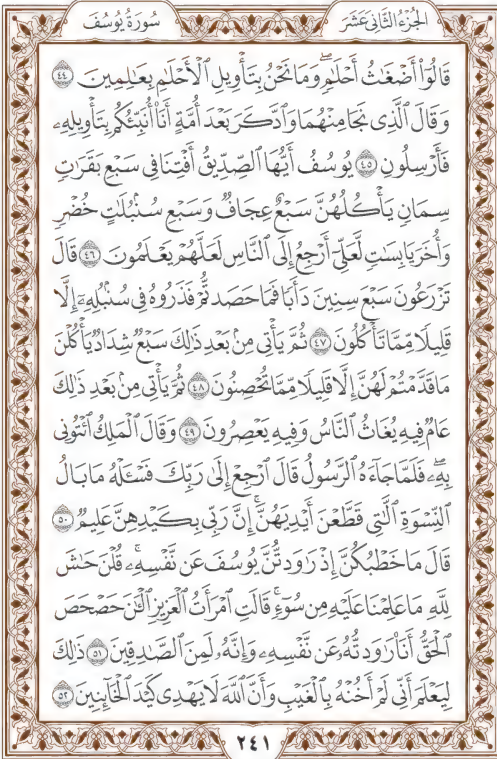 الجُزْءُ الثَّانِي عَشَرَ
سُورَةُ يُوسُفَ
قَالُوٓا۟ أَضْغَٰثُ أَحْلَٰمٍۖ وَمَا نَحْنُ بِتَأْوِيلِ ٱلْأَحْلَٰمِ بِعَٰلِمِينَ ٤٤
وَقَالَ ٱلَّذِى نَجَا مِنْهُمَا وَٱدَّكَرَ بَعْدَ أُمَّةٍ أَنَا۠ أُنَبِّئُكُم بِتَأْوِيلِهِۦ
فَأَرْسِلُونِ ٤٥ يُوسُفُ أَيُّهَا ٱلصِّدِّيقُ أَفْتِنَا فِى سَبْعِ بَقَرَٰتٍ
سِمَانٍ يَأْكُلُهُنَّ سَبْعٌ عِجَافٌ وَسَبْعِ سُنۢبُلَٰتٍ خُضْرٍ
وَأُخَرَ يَابِسَٰتٍ لَّعَلِّىٓ أَرْجِعُ إِلَى ٱلنَّاسِ لَعَلَّهُمْ يَعْلَمُونَ ٤٦ قَالَ
تَزْرَعُونَ سَبْعَ سِنِينَ دَأَبًا فَمَا حَصَدتُّمْ فَذَرُوهُ فِى سُنۢبُلِهِۦٓ إِلَّا
قَلِيلًا مِّمَّا تَأْكُلُونَ ٤٧ ثُمَّ يَأْتِى مِنۢ بَعْدِ ذَٰلِكَ سَبْعٌ شِدَادٌ يَأْكُلْنَ
مَا قَدَّمْتُمْ لَهُنَّ إِلَّا قَلِيلًا مِّمَّا تُحْصِنُونَ ٤٨ ثُمَّ يَأْتِى مِنۢ بَعْدِ ذَٰلِكَ
عَامٌ فِيهِ يُغَاثُ ٱلنَّاسُ وَفِيهِ يَعْصِرُونَ ٤٩ وَقَالَ ٱلْمَلِكُ ٱئْتُونِى
بِهِۦۖ فَلَمَّا جَآءَهُ ٱلرَّسُولُ قَالَ ٱرْجِعْ إِلَىٰ رَبِّكَ فَسْـَٔلْهُ مَا بَالُ
ٱلنِّسْوَةِ ٱلَّٰتِى قَطَّعْنَ أَيْدِيَهُنَّۚ إِنَّ رَبِّى بِكَيْدِهِنَّ عَلِيمٌ ٥٠
قَالَ مَا خَطْبُكُنَّ إِذْ رَٰوَدتُّنَّ يُوسُفَ عَن نَّفْسِهِۦۚ قُلْنَ حَٰشَ
لِلَّهِ مَا عَلِمْنَا عَلَيْهِ مِن سُوٓءٍۚ قَالَتِ ٱمْرَأَتُ ٱلْعَزِيزِ ٱلْـَٰٔنَ حَصْحَصَ
ٱلْحَقُّ أَنَا۠ رَٰوَدتُّهُۥ عَن نَّفْسِهِۦ وَإِنَّهُۥ لَمِنَ ٱلصَّٰدِقِينَ ٥١ ذَٰلِكَ
لِيَعْلَمَ أَنِّى لَمْ أَخُنْهُ بِٱلْغَيْبِ وَأَنَّ ٱللَّهَ لَا يَهْدِى كَيْدَ ٱلْخَآئِنِينَ ٥٢
٢٤١